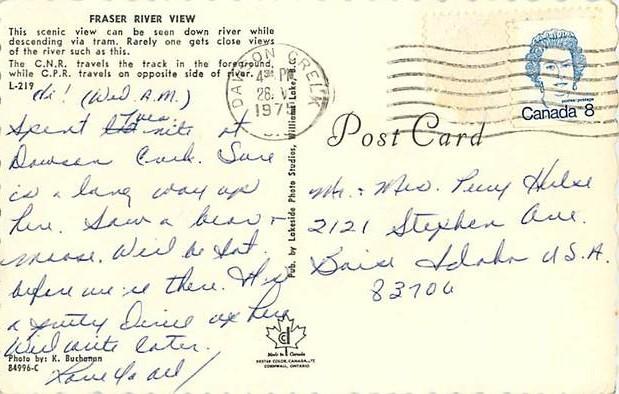 FRASER RIVER VIEW
This scenic view can be seen down river while
descending via tram. Rarely one gets close views
of the river such as this.
The C.N.R. travels the track in the foreground,
while C.P.R. travels on opposite side of river.
L-219
Hi! (Wed A.M.)
Spent Tues. nite at
Dawson Creek. Sure
is a long way up
here. Saw a bear +
moose. Will be Sat.
before we're there. Had
a pretty Drive up here
Will write later.
Love Ya All!
Photo by: K. Buchanan
84996-C
Pub. by Lakeside Photo Studios, Williams Lake, B.C.
DAWSON CREEK
4 PM
26. V
1975
B.C.
Post Card
postes postage
Canada 8
Mr. & Mrs. Percy
2121 Stephen Ave.
Boise Idaho U.S.A.
83706
Made in Canada
DEXTER COLOR CANADA LTD
CORNWALL, ONTARIO